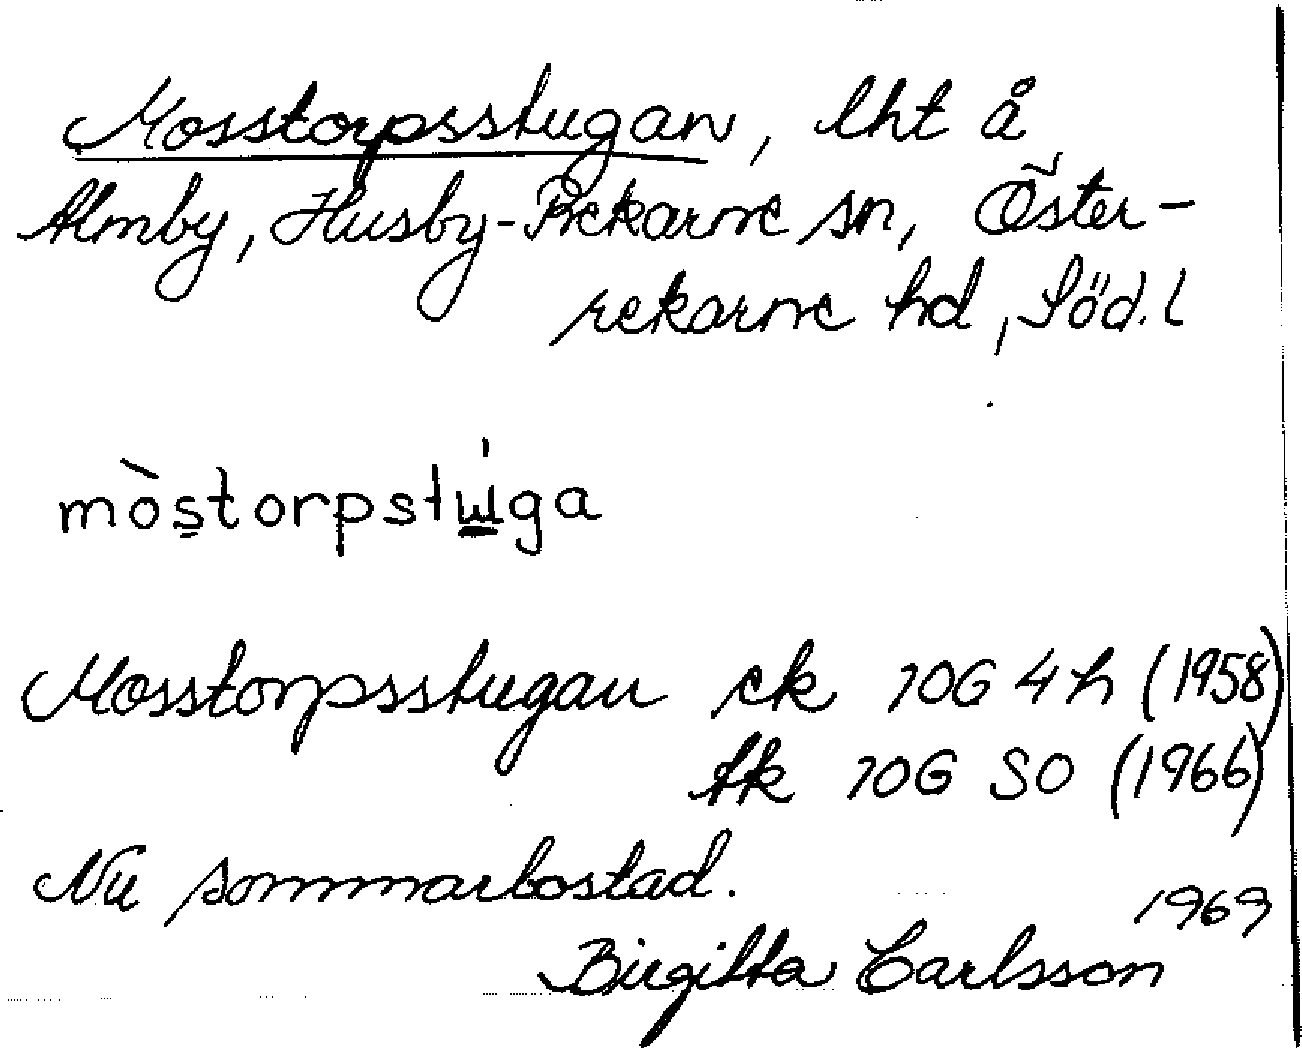 Mosstorpsstugan, lht å
Almby, Husby-Rekarne sn, Öster-
rekarne hd, Söd. l
mòstorpstɯ̍ga
Mosstorpsstugan ek 10G 4h (1958)
tk 10G SO (1966)
Nu sommarbostad.
1969
Birgitta Carlsson